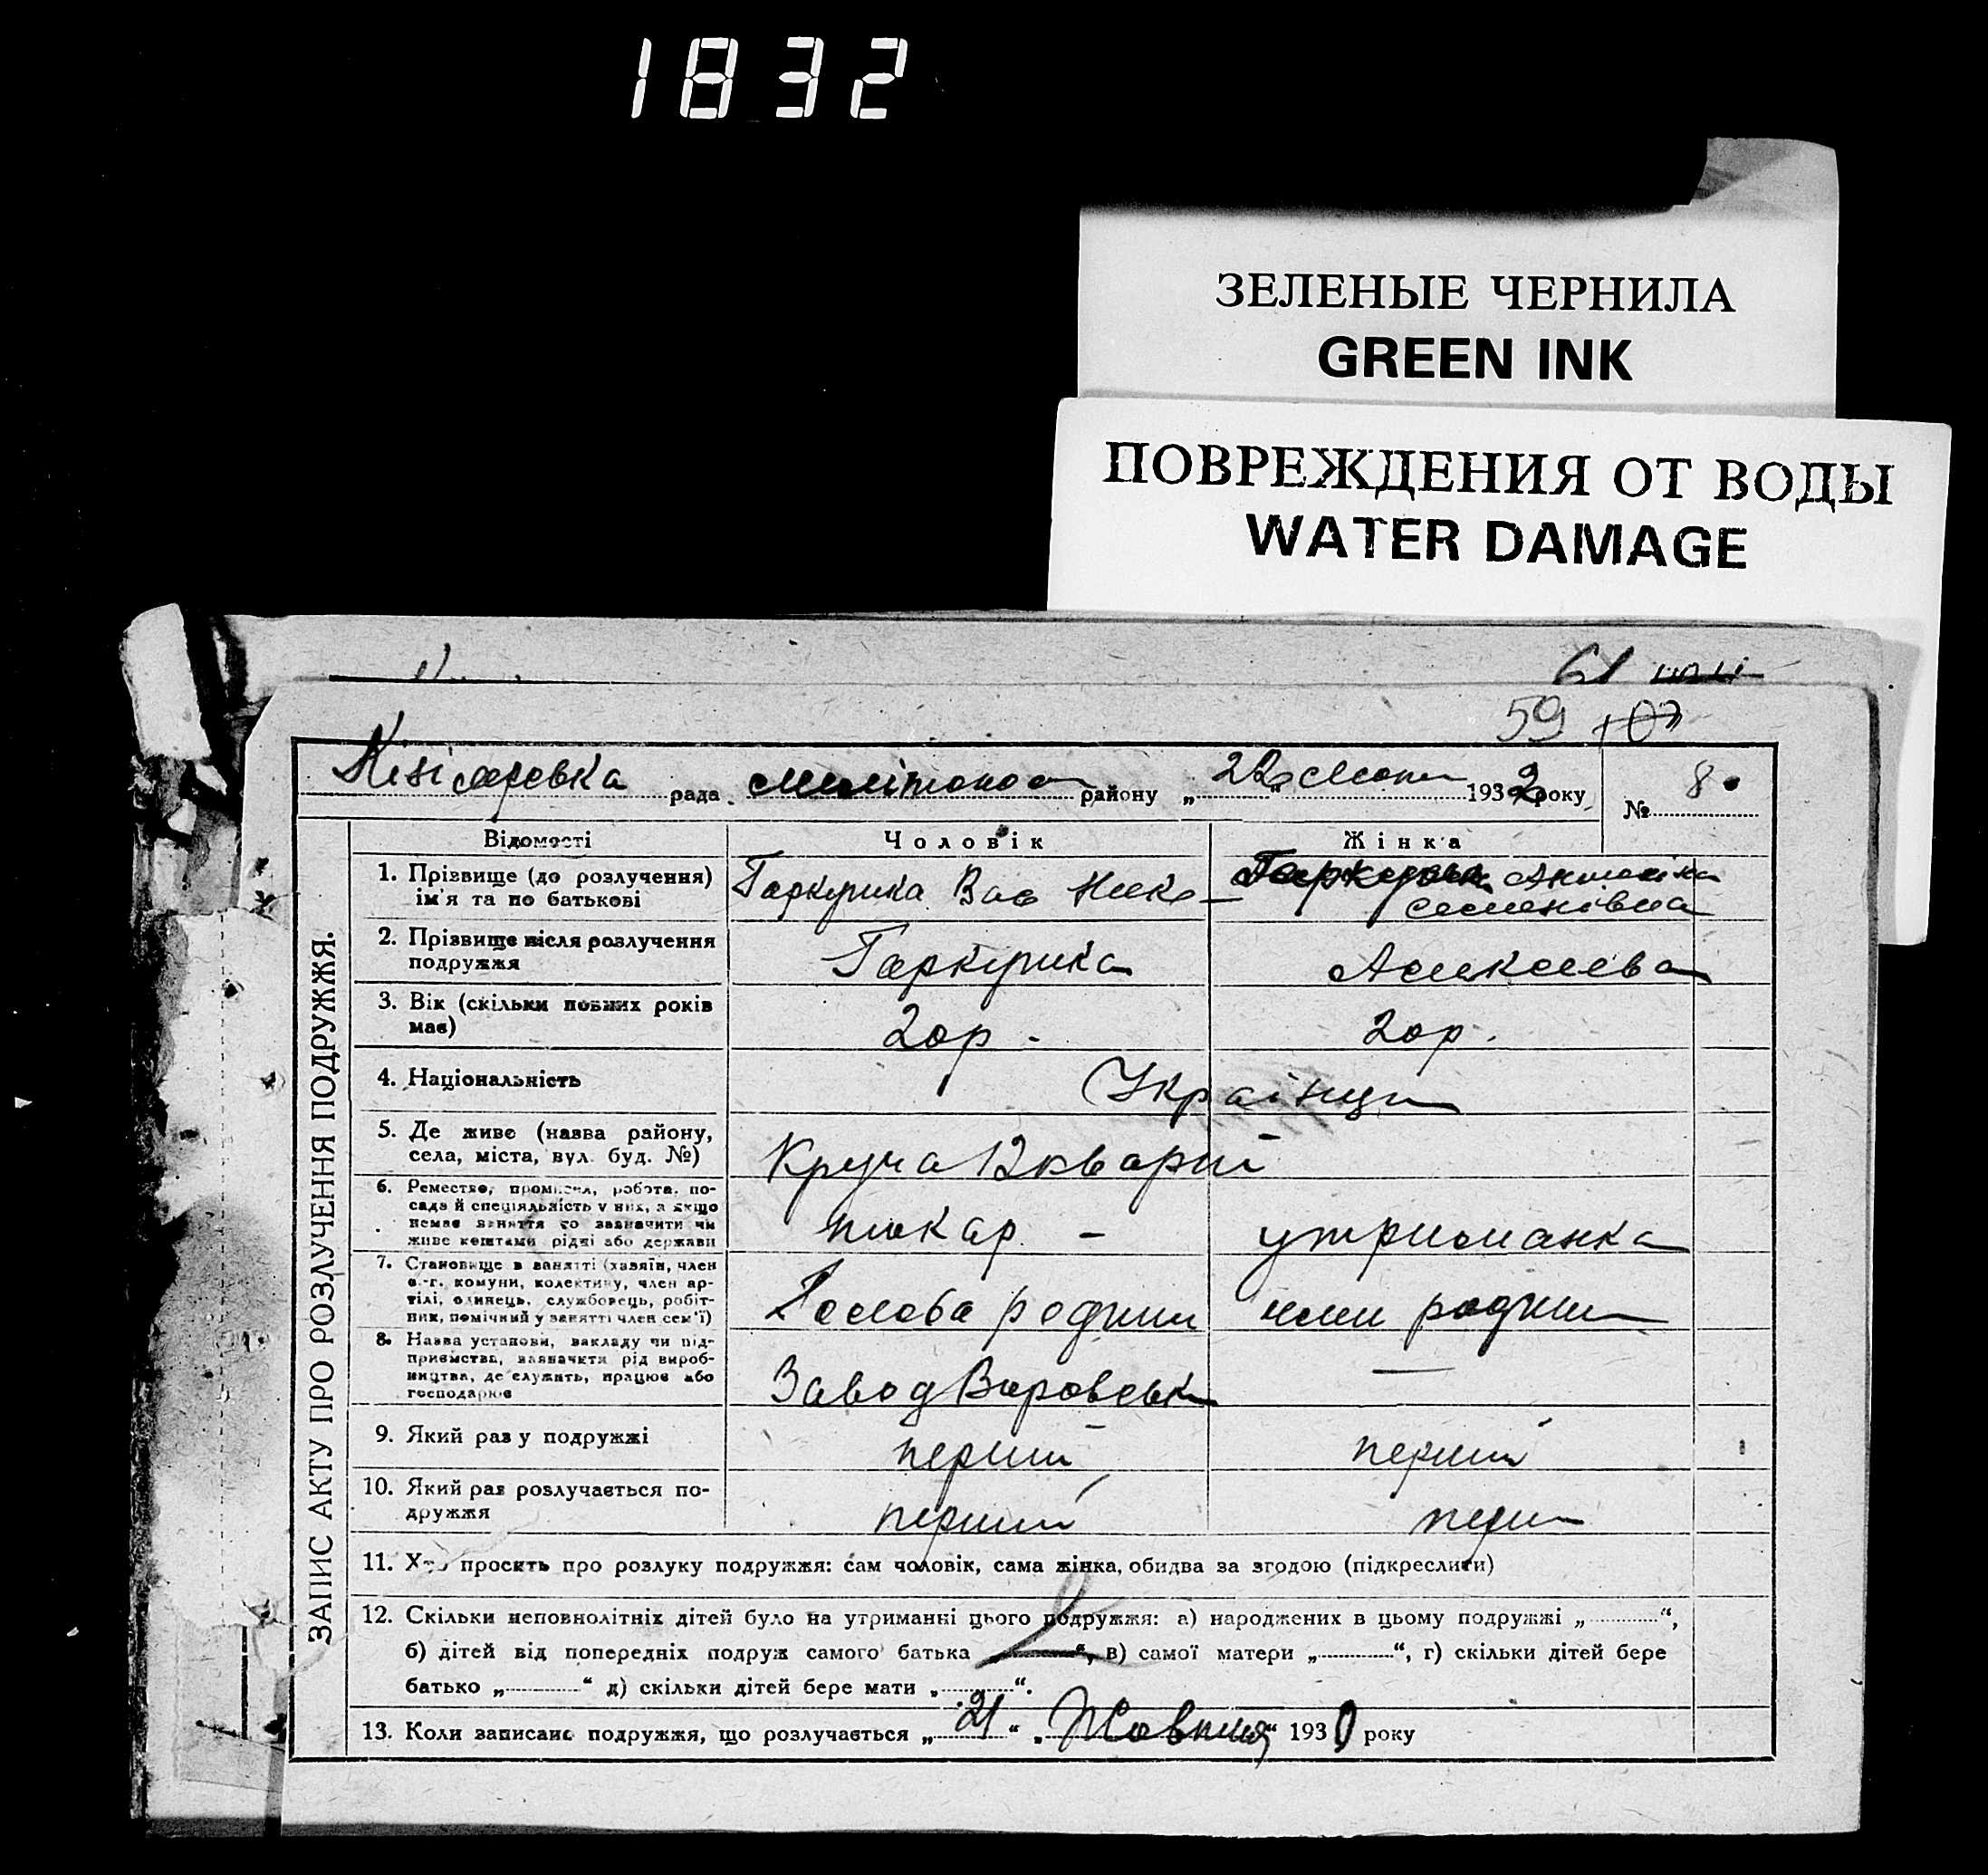 1832
ЗЕЛЕНЫЕ ЧЕРНИЛА
GREEN INK
ПОВРЕЖДЕНИЯ ОТ ВОДЫ
WATER DAMAGE
61
59 107
Кізіярівка рада району „22“ 1932 року № 8
ЗАПИС АКТУ ПРО РОЗЛУЧЕННЯ ПОДРУЖЖЯ.
Відомості Чоловік Жінка
1. Прізвище (до розлучення) ім'я та по батькові
Гаркуша Вас
Семенівна
2. Прізвище після розлучення подружжя
3. Вік (скільки повних років має)
20 р. 20 р.
4. Національність
Українці
5. Де живе (назва району, села, міста, вул. буд. №)
Круча 12 кварт
6. Ремество, промисел, робота, посада й спеціяльність у них, а якщо немає заняття то зазначити чи живе коштами рідні або держави
токар – утриманка
7. Становище в занятті (хазяїн, член с.-г. комуни, колективу, член артілі, одинець, службовець, робітник, помічний у занятті член сем'ї)
Голова родини член родини
8. Назва установи, закладу чи підприємства, зазначити рід виробництва, де служить, працює або господарює
Завод Воровськ —
9. Який раз у подружжі
перший перший
10. Який раз розлучається подружжя
перший перш
11. Хто просить про розлуку подружжя: сам чоловік, сама жінка, обидва за згодою (підкреслити)
12. Скільки неповнолітніх дітей було на утриманні цього подружжя: а) народжених в цьому подружжі „............“,
б) дітей від попередніх подруж самого батька „............“, в) самої матери „............“, г) скільки дітей бере
батько „............“ д) скільки дітей бере мати „............“.
13. Коли записано подружжя, що розлучається „21“ „Жовтня“ 1930 року